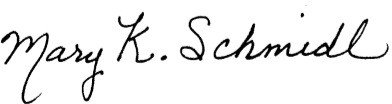 Mary K. Schmidl